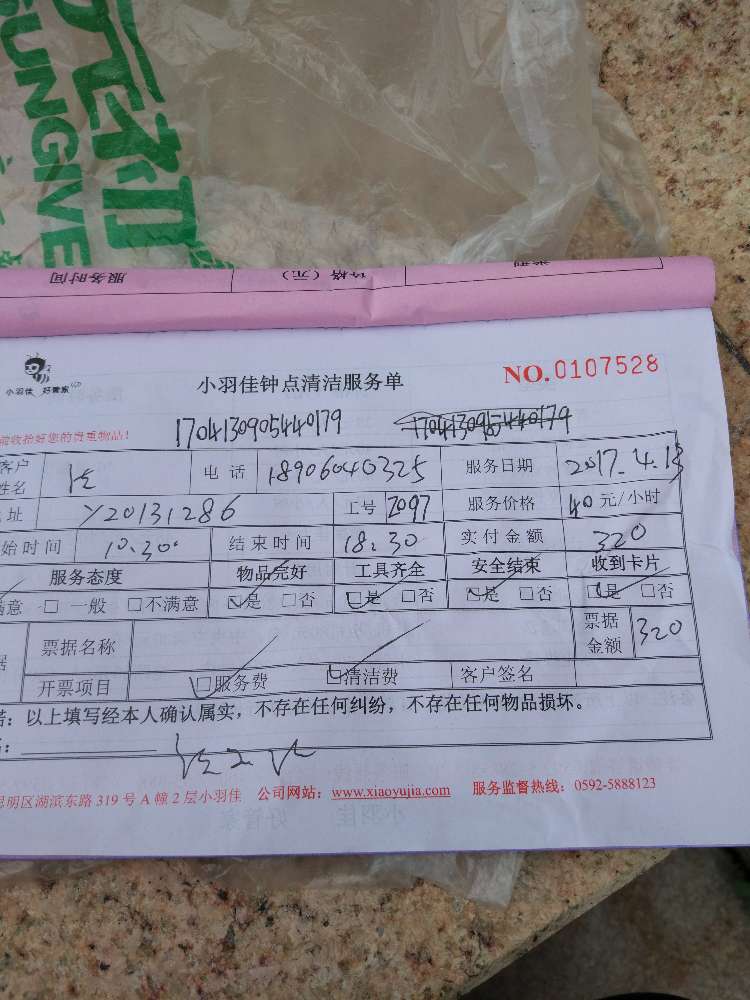 元初
SUNGIVE
服务时间 价格（元） 类别
小羽佳 好管家 小羽佳钟点清洁服务单 NO.0107528
请收拾好您的贵重物品! 1704130905440179 1704130905440179
客户姓名 电话 18906040325 服务日期 2017.4.13
址 Y20131286 工号 2097 服务价格 40元/小时
始时间 10:30 结束时间 18:30 实付金额 320
服务态度 物品完好 工具齐全 安全结束 收到卡片
满意 □一般 □不满意 □是 □否 □是 □否 □是 □否 □是 □否
据 票据名称 票据金额 320
开票项目 □服务费 □清洁费 客户签名
诺：以上填写经本人确认属实，不存在任何纠纷，不存在任何物品损坏。
思明区湖滨东路319号A幢2层小羽佳 公司网站：www.xiaoyujia.com 服务监督热线：0592-5888123